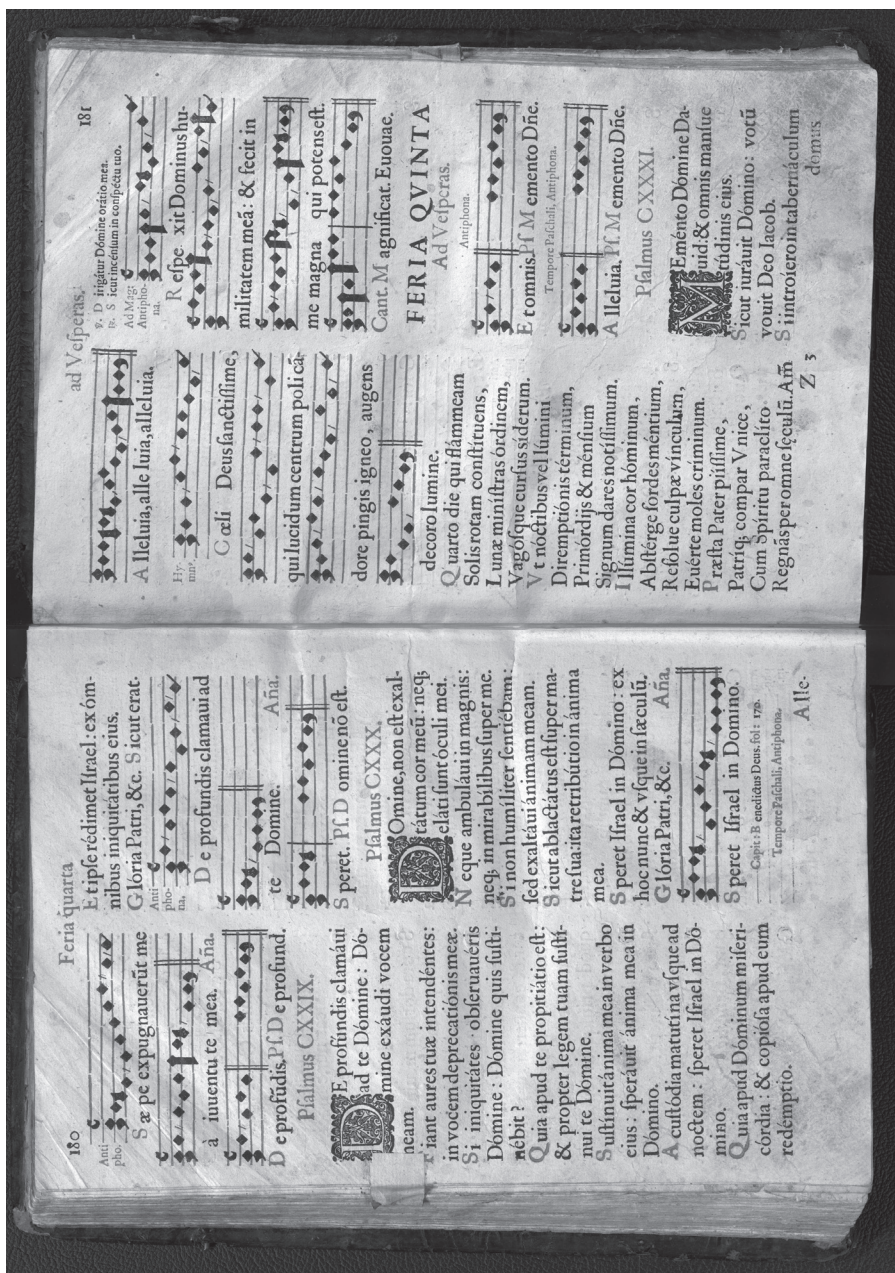 180
Feria quarta
Anti
pho.
S æ pe expugnauerũt me
à iuuentu te mea. Aña.
D e profũdis. Pſ. D e profund.
Pſalmus CXXIX.
DE profúndis clamáui
ad te Dómine: Dó-
mine exáudi vocem
meam.
Fiant aures tuæ intendéntes:
in vocem deprecatiónis meæ.
Si iniquitátes obſeruauéris
Dómine: Dómine quis ſuſti-
nébit?
Quia apud te propitiátio eſt:
& propter legem tuam ſuſtí-
nui te Dómine.
Suſtínuit ánima mea in verbo
eius: ſperáuit ánima mea in
Dómino.
A cuſtódia matutína vſque ad
noctem: ſperet Iſrael in Dó-
mino.
Quia apud Dóminum miſeri-
córdia: & copióſa apud eum
redémptio.
Et ipſe rédimet Iſrael: ex óm-
nibus iniquitátibus eius.
Glória Patri, &c. Sicut erat.
Anti
pho-
na.
D e profundis clamaui ad
te Domine. Aña.
S peret. Pſ. D omine nõ eſt.
Pſalmus CXXX.
DOmine, non eſt exal-
tátum cor meũ: neq;
eláti ſunt óculi mei.
Neque ambuláui in magnis:
neq; in mirabílibus ſuper me.
Si non humíliter ſentiébam:
ſed exaltáui ánimam meam.
Sicut ablactátus eſt ſuper ma-
tre ſua: ita retribútio in ánima
mea.
Speret Iſrael in Dómino: ex
hoc nunc & vſque in ſæculũ.
Glória Patri, &c. Aña.
S peret Iſrael in Domino.
Capit: B enedictus Deus. fol: 170.
Tempore Paſchali, Antiphona.
Alle-
ad Veſperas.
181
A lleluia, alle luia, alleluia.
Hy-
mnꝰ.
C œli Deus ſanctiſſime,
qui lucidum centrum poli cã-
dore pingis igneo, augens
decoro lumine.
Quarto die qui flámmeam
Solis rotam conſtítuens,
Lunæ miníſtras órdinem,
Vagóſque curſus síderum.
Vt nóctibus vel lúmini
Diremptiónis términum,
Primórdijs & ménſium
Signum dares notíſſimum.
Illúmina cor hóminum,
Abſtérge ſordes méntium,
Reſolue culpæ vínculum,
Euérte moles críminum.
Præſta Pater piíſſime,
Patríq; compar Vnice,
Cum Spíritu paraclíto
Regnãs per omne ſęculũ. Am̃
Z 3
℣. D irigátur Dómine orátio mea.
℟. S icut incénſum in conſpéctu tuo.
Ad Mag:
Antipho-
na.
R eſpe xit Dominus hu-
militatem meã: & fecit in
me magna qui potens eſt.
Cant. M agnificat. Euouae.
FERIA QVINTA
Ad Veſperas.
Antiphona.
E t omnis. Pſ. M emento Dñe.
Tempore Paſchali, Antiphona.
A lleluia. Pſ. M emento Dñe.
Pſalmus CXXXI.
MEménto Dómine Da-
uid: & omnis manſue
túdinis eius.
Sicut iuráuit Dómino: votũ
vouit Deo Iacob.
Si introíero in tabernáculum
domus